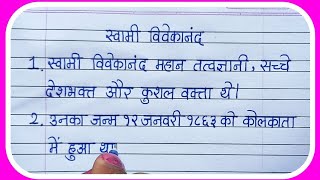 स्वामी विवेकानंद
1. स्वामी विवेकानंद महान तत्वज्ञानी, सच्चे
देशभक्त और कुशल वक्ता थे।
2. उनका जन्म १२ जनवरी १८६३ को कोलकाता
में हुआ था